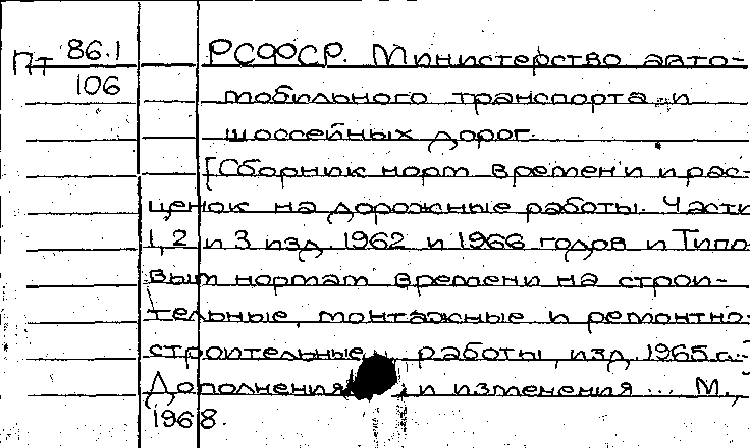 Пт 86.1 РСФСР. Министерство авто-
106 мобильного транспорта и
шоссейных дорог.
[Сборник норм времени и рас-
ценок на дорожные работы. Части
1, 2 и 3 изд. 1962 и 1966 годов и Типо-
вым нормам времени на строи-
тельные, монтажные и ремонтно-
строительные работы, изд. 1965 г.]
Дополнения и изменения... М.,
1968.